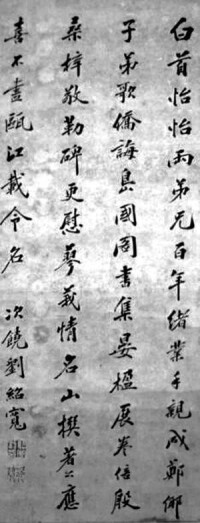 白首怡怡兩弟兄百年緒業手親成鄭鄉
子弟歌僑誨島國圖書集晏楹展卷倍殷
桑梓敬勒碑更慰蓼莪情名山撰著公應
喜不盡甌江載令名 次饒劉紹寬